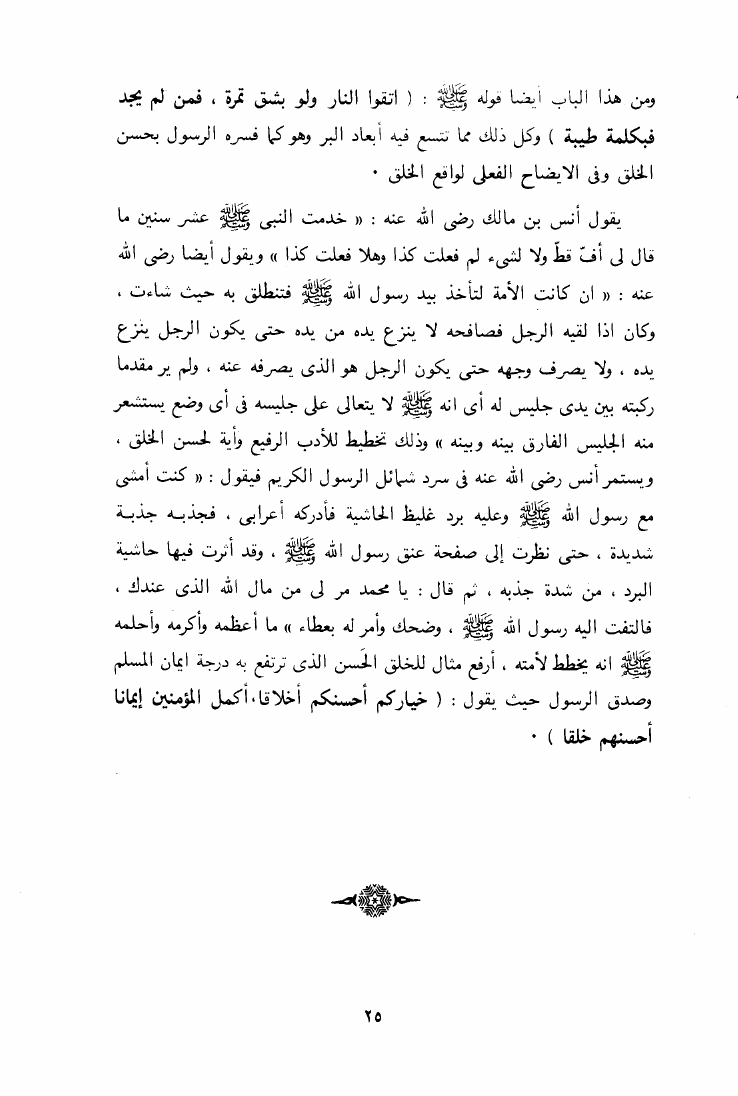 ومن هذا الباب أيضا قوله ﷺ : ( اتقوا النار ولو بشق تمرة ، فمن لم يجد
فبكلمة طيبة ) وكل ذلك مما تتسع فيه أبعاد البر وهو كما فسره الرسول بحسن
الخلق وفى الايضاح الفعلى لواقع الخلق .
يقول أنس بن مالك رضى الله عنه : « خدمت النبى ﷺ عشر سنين ما
قال لى أفّ قطّ ولا لشىء لم فعلت كذا وهلا فعلت كذا » ويقول أيضا رضى الله
عنه : « ان كانت الأمة لتأخذ بيد رسول الله ﷺ فتنطلق به حيث شاءت ،
وكان اذا لقيه الرجل فصافحه لا ينزع يده من يده حتى يكون الرجل ينزع
يده ، ولا يصرف وجهه حتى يكون الرجل هو الذى يصرفه عنه ، ولم ير مقدما
ركبته بين يدى جليس له أى انه ﷺ لا يتعالى على جليسه فى أى وضع يستشعر
منه الجليس الفارق بينه وبينه » وذلك تخطيط للأدب الرفيع وأية لحسن الخلق ،
ويستمر أنس رضى الله عنه فى سرد شمائل الرسول الكريم فيقول : « كنت أمشى
مع رسول الله ﷺ وعليه برد غليظ الحاشية فأدركه أعرابى ، فجذبه جذبة
شديدة ، حتى نظرت إلى صفحة عنق رسول الله ﷺ ، وقد أثرت فيها حاشية
البرد ، من شدة جذبه ، ثم قال : يا محمد مر لى من مال الله الذى عندك ،
فالتفت اليه رسول الله ﷺ ، وضحك وأمر له بعطاء » ما أعظمه وأكرمه وأحلمه
ﷺ انه يخطط لأمته ، أرفع مثال للخلق الحَسن الذى ترتفع به درجة ايمان المسلم
وصدق الرسول حيث يقول : ( خياركم أحسنكم أخلاقا، أكمل المؤمنين إيمانا
أحسنهم خلقا ) .
٢٥